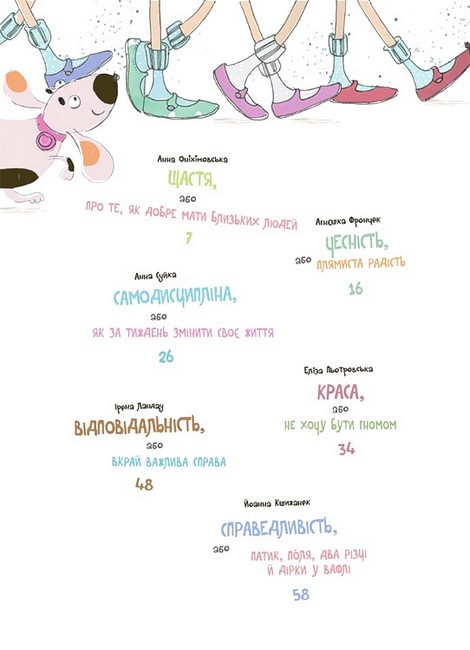 Анна Оніхімовська
ЩАСТЯ,
або
ПРО ТЕ, ЯК ДОБРЕ МАТИ БЛИЗЬКИХ ЛЮДЕЙ
7
Агнєшка Фрончек
ЧЕСНІСТЬ,
або ПЛЯМИСТА РАДІСТЬ
16
Анна Суйка
САМОДИСЦИПЛІНА,
або
ЯК ЗА ТИЖДЕНЬ ЗМІНИТИ СВОЄ ЖИТТЯ
26
Еліза Пьотровська
КРАСА,
або
НЕ ХОЧУ БУТИ ГНОМОМ
34
Ірена Ландау
ВІДПОВІДАЛЬНІСТЬ,
або
ВКРАЙ ВАЖЛИВА СПРАВА
48
Йоанна Кшижанек
СПРАВЕДЛИВІСТЬ,
або ПАТИК, ПОЛЯ, ДВА РІЗЦІ
Й ДІРКИ У ВАФЛІ
58